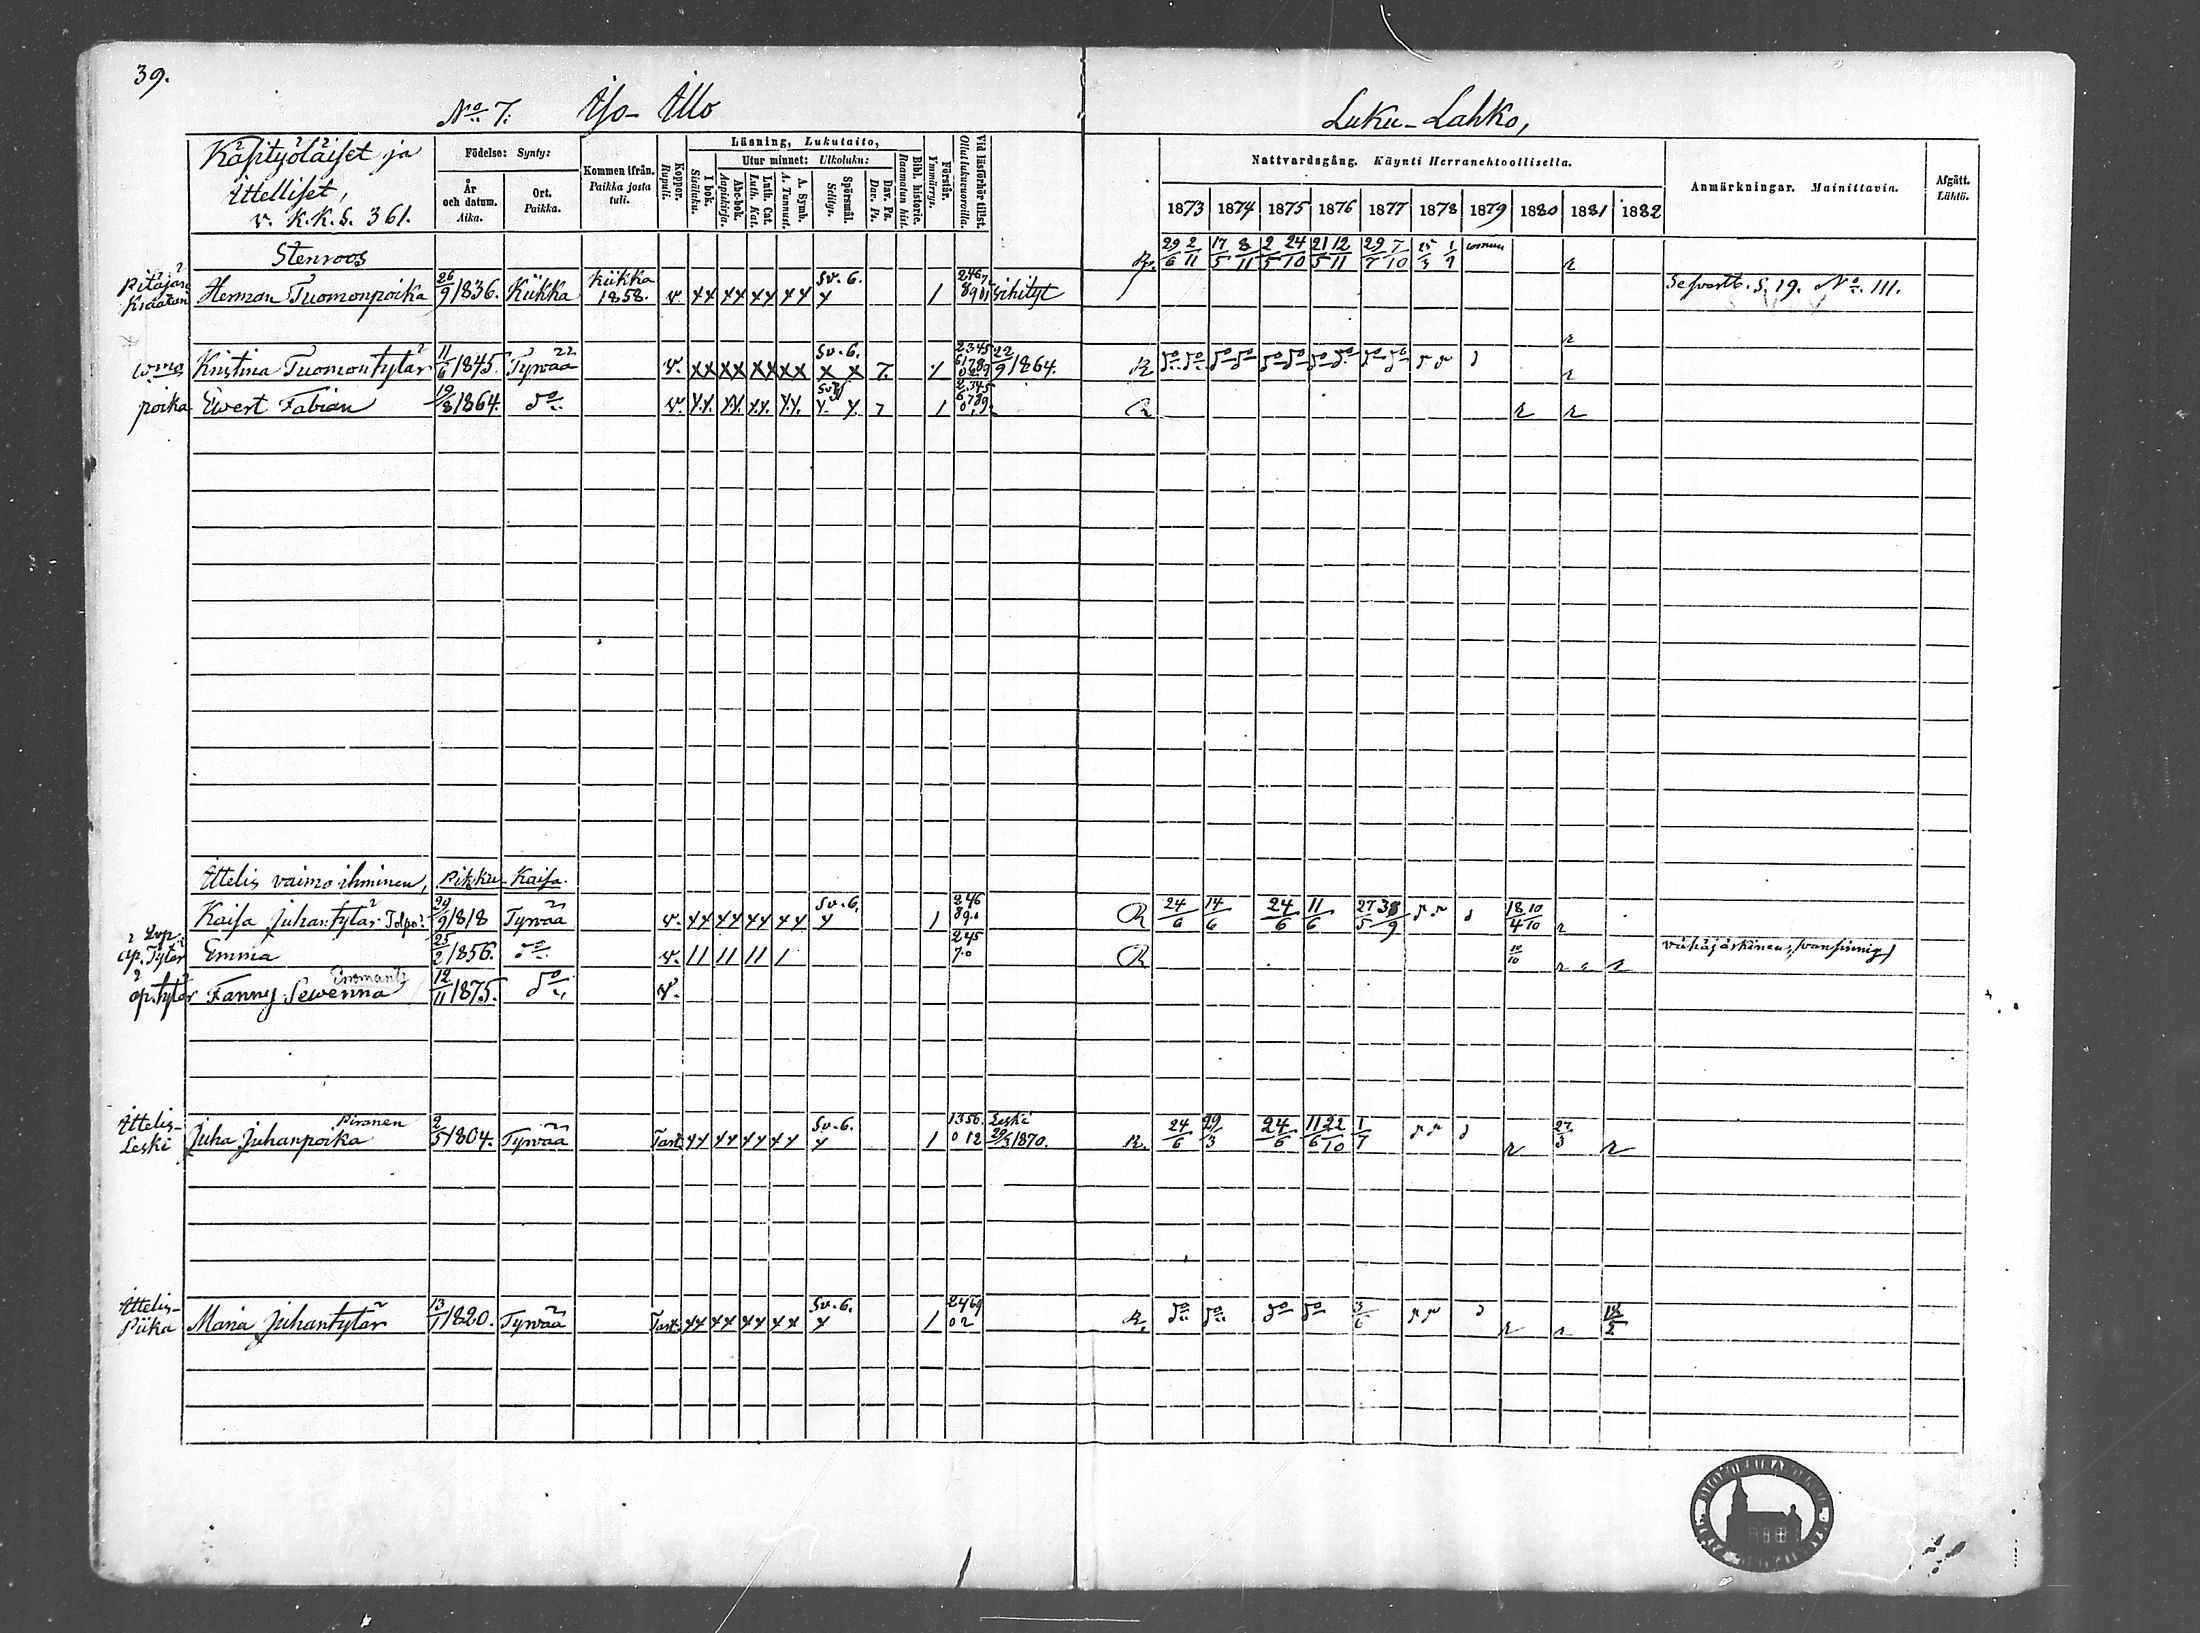 39.
No 7. Iso-Illo Luku-Lahko,
Käsityöläiset ja
Ittelliset,
v. K.K.S. 361.
Födelse: Synty:
År och datum. Aika.
Ort. Paikka.
Kommen ifrån. Paikka josta tuli.
Koppor. Rupuli.
Läsning, Lukutaito,
I bok. Sisäluku.
Utur minnet: Ulkoluku:
Abc-bok. Aapiskirja.
Luth. Cat. Luth. Kat.
A. Symb. A. Tunnust.
Spörsmål. Selitys.
Dav. Ps. Dav. Ps.
Bibl. historie. Raamatun hist.
Förstår. Ymmärrys.
Vid läsförhör tillst. Ollut lukuvuoroilla
Nattvardsgång. Käynti Herranehtoollisella.
1873 1874 1875 1876 1877 1878 1879 1880 1881 1882
Anmärkningar. Mainittavia.
Afgått. Lähtö.
Stenroos
29/6 2/11 17/5 8/11 2/5 24/10 21/5 12/11 29/7 7/10 25/3 1/9
r
Pitäjän
Kräätäri Herman Tuomonpoika 26/9 1836. Kiikka Kiikka 1858. v. xx xx xx xx Sv. 6. x 1 vihityt S. 19. No. 111.
r
wmo Kristina Tuomontytär 11/6 1845. Tyrvää v. xx xx xx xx Sv. 6. x x 7. 1 2345 22/9 1864. R do do do do do do do do do do r
poika Ewert Fabian 19/8 1864. do v. xx xx xx xx x x 7 1 2345 R r r
Ittelis vaimo ihminen, Pikku Kaisa.
Kaisa Juhantytär 29/9 1818 Tyrvää v. xx xx xx xx Sv. 6. x 1 246 R 24/6 14/6 24/6 11/6 27/5 18/4 10/10 r
äp. Tytär Emma 25/2 1856. do v. 11 11 11 1 245 70 R 10/10 r r vähäjärkinen, (vansinnig)
äp. tytär Fanny Sewerina 12/11 1875. do v.
Ittelis-
Leski Juha Juhanpoika Piranen 2/5 1804. Tyrvää Tart. xx xx xx xx Sv. 6. x 1 1356. 0 12 Leski 29/3 1870. R. 24/6 29/3 24/6 11/6 22/10 1/7 r 27/3 r
Ittelis-
Piika Maria Juhantytär 13/1 1820. Tyrvää Tart. xx xx xx xx Sv. 6. x 1 2469 02 R. do do do do 3/6 r r